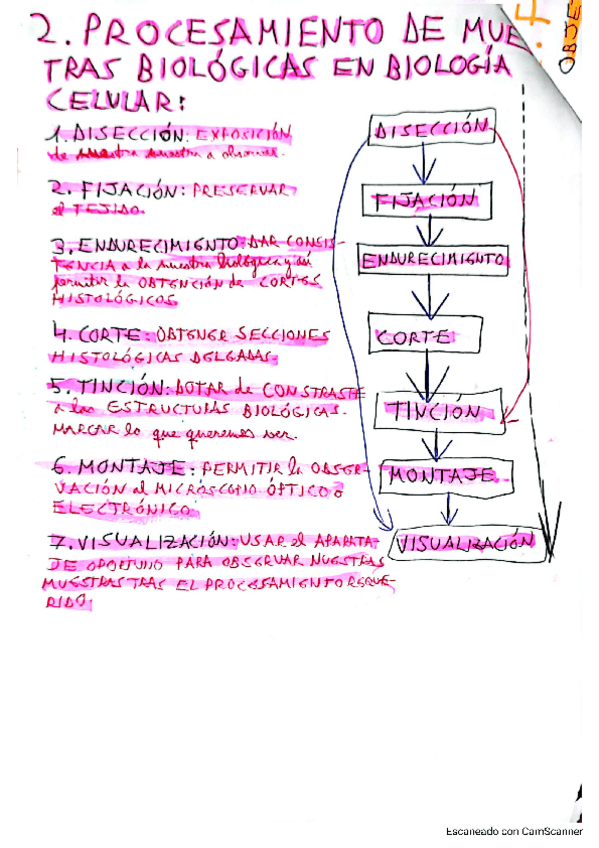 2. PROCESAMIENTO DE MUE
TRAS BIOLÓGICAS EN BIOLOGÍA
CELULAR:
1. DISECCIÓN: EXPOSICIÓN
de nuestra muestra a observar.
2. FIJACIÓN: PRESERVAR
el TEJIDO.
3. ENDURECIMIENTO: DAR CONSIS-
TENCIA a la muestra biológica y así
permitir la OBTENCIÓN de CORTES
HISTOLÓGICOS
4. CORTE: OBTENER SECCIONES
HISTOLÓGICAS DELGADAS.
5. TINCIÓN: DOTAR de CONSTRASTE
a las ESTRUCTURAS BIOLÓGICAS.
MARCAR lo que queremos ver.
6. MONTAJE: PERMITIR la OBSER-
VACIÓN al MICROSCOPIO ÓPTICO o
ELECTRÓNICO.
7. VISUALIZACIÓN: USAR el APARATA-
JE OPORTUNO PARA OBSERVAR NUESTRAS
MUESTRAS TRAS EL PROCESAMIENTO REQUE-
RIDO.
DISECCIÓN
FIJACIÓN
ENDURECIMIENTO
CORTE
TINCIÓN
MONTAJE
VISUALIZACIÓN
OBJE
Escaneado con CamScanner